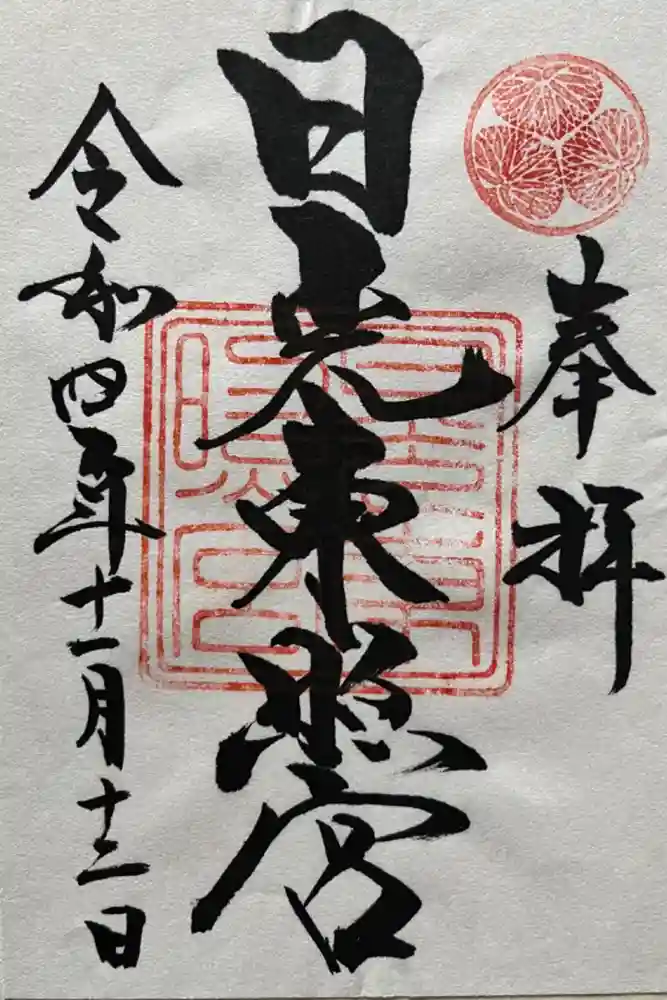 奉拝
日光東照宮
令和四年十一月十二日